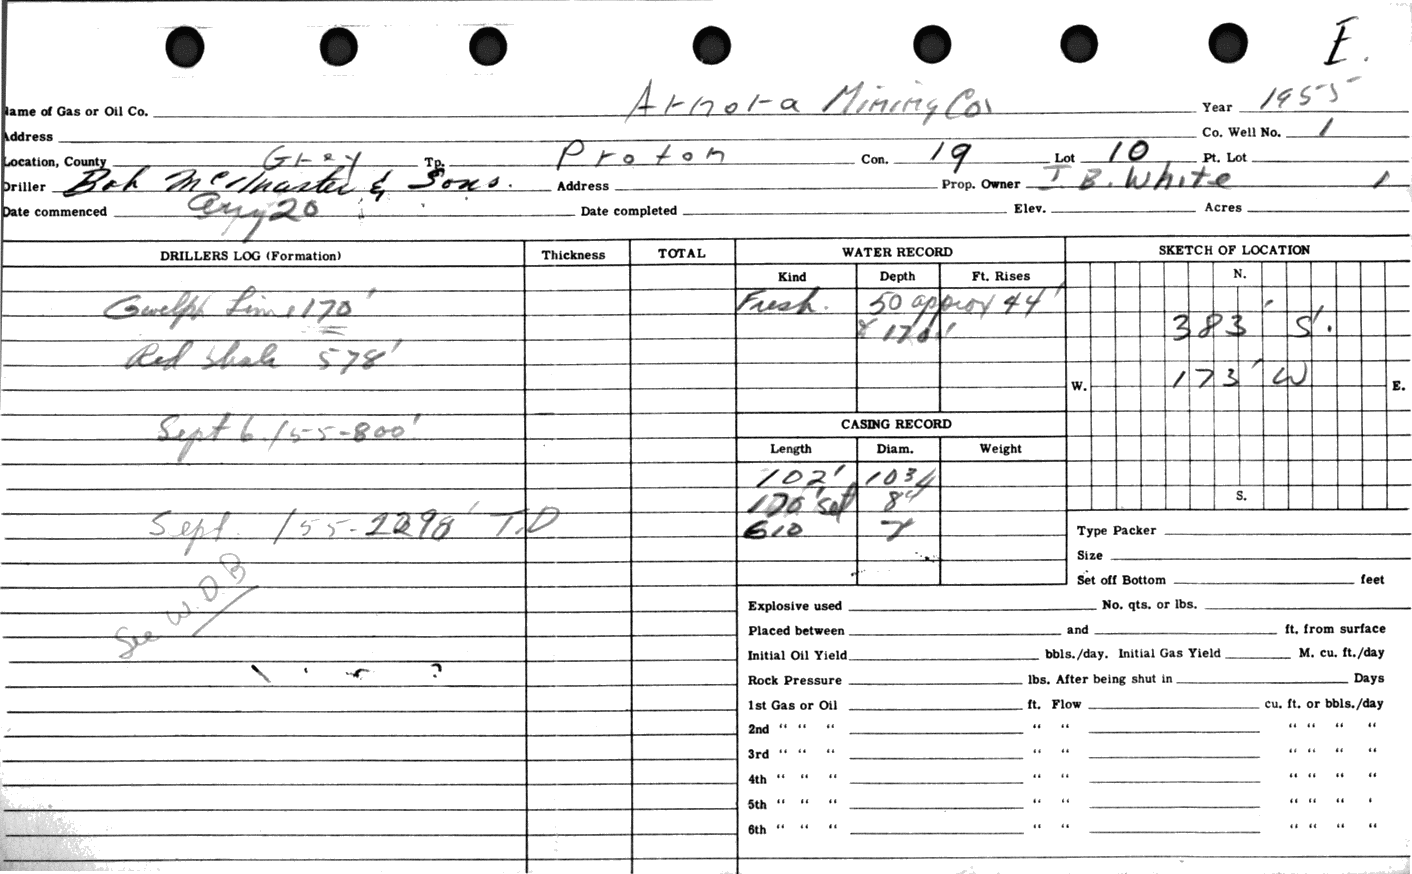 E.
Name of Gas or Oil Co. Arnora Mining Co. Year 1955
Address Co. Well No. 1
Location, County Grey Tp. Proton Con. 19 Lot 10 Pt. Lot
Driller Bob McMaster & Sons. Address Prop. Owner I B. White 1
Date commenced Aug 20 Date completed Elev. Acres
DRILLERS LOG (Formation) Thickness TOTAL WATER RECORD SKETCH OF LOCATION
Kind Depth Ft. Rises N.
Guelph Lime 170' Fresh. 50 approx 44'
& 170' 383' S'.
Red Shale 578'
W. 173' W E.
Sept 6/55-800' CASING RECORD
Length Diam. Weight
102' 10 3/4
170' set 8" S.
Sept. /55-2298' T.D 610 7
Type Packer
Size
See W.D.B Set off Bottom feet
Explosive used No. qts. or lbs.
Placed between and ft. from surface
Initial Oil Yield bbls./day. Initial Gas Yield M. cu. ft./day
Rock Pressure lbs. After being shut in Days
1st Gas or Oil ft. Flow cu. ft. or bbls./day
2nd “ “ “ “ “ “ “ “ “
3rd “ “ “ “ “ “ “ “ “
4th “ “ “ “ “ “ “ “ “
5th “ “ “ “ “ “ “ “ '
6th “ “ “ “ “ “ “ “ “